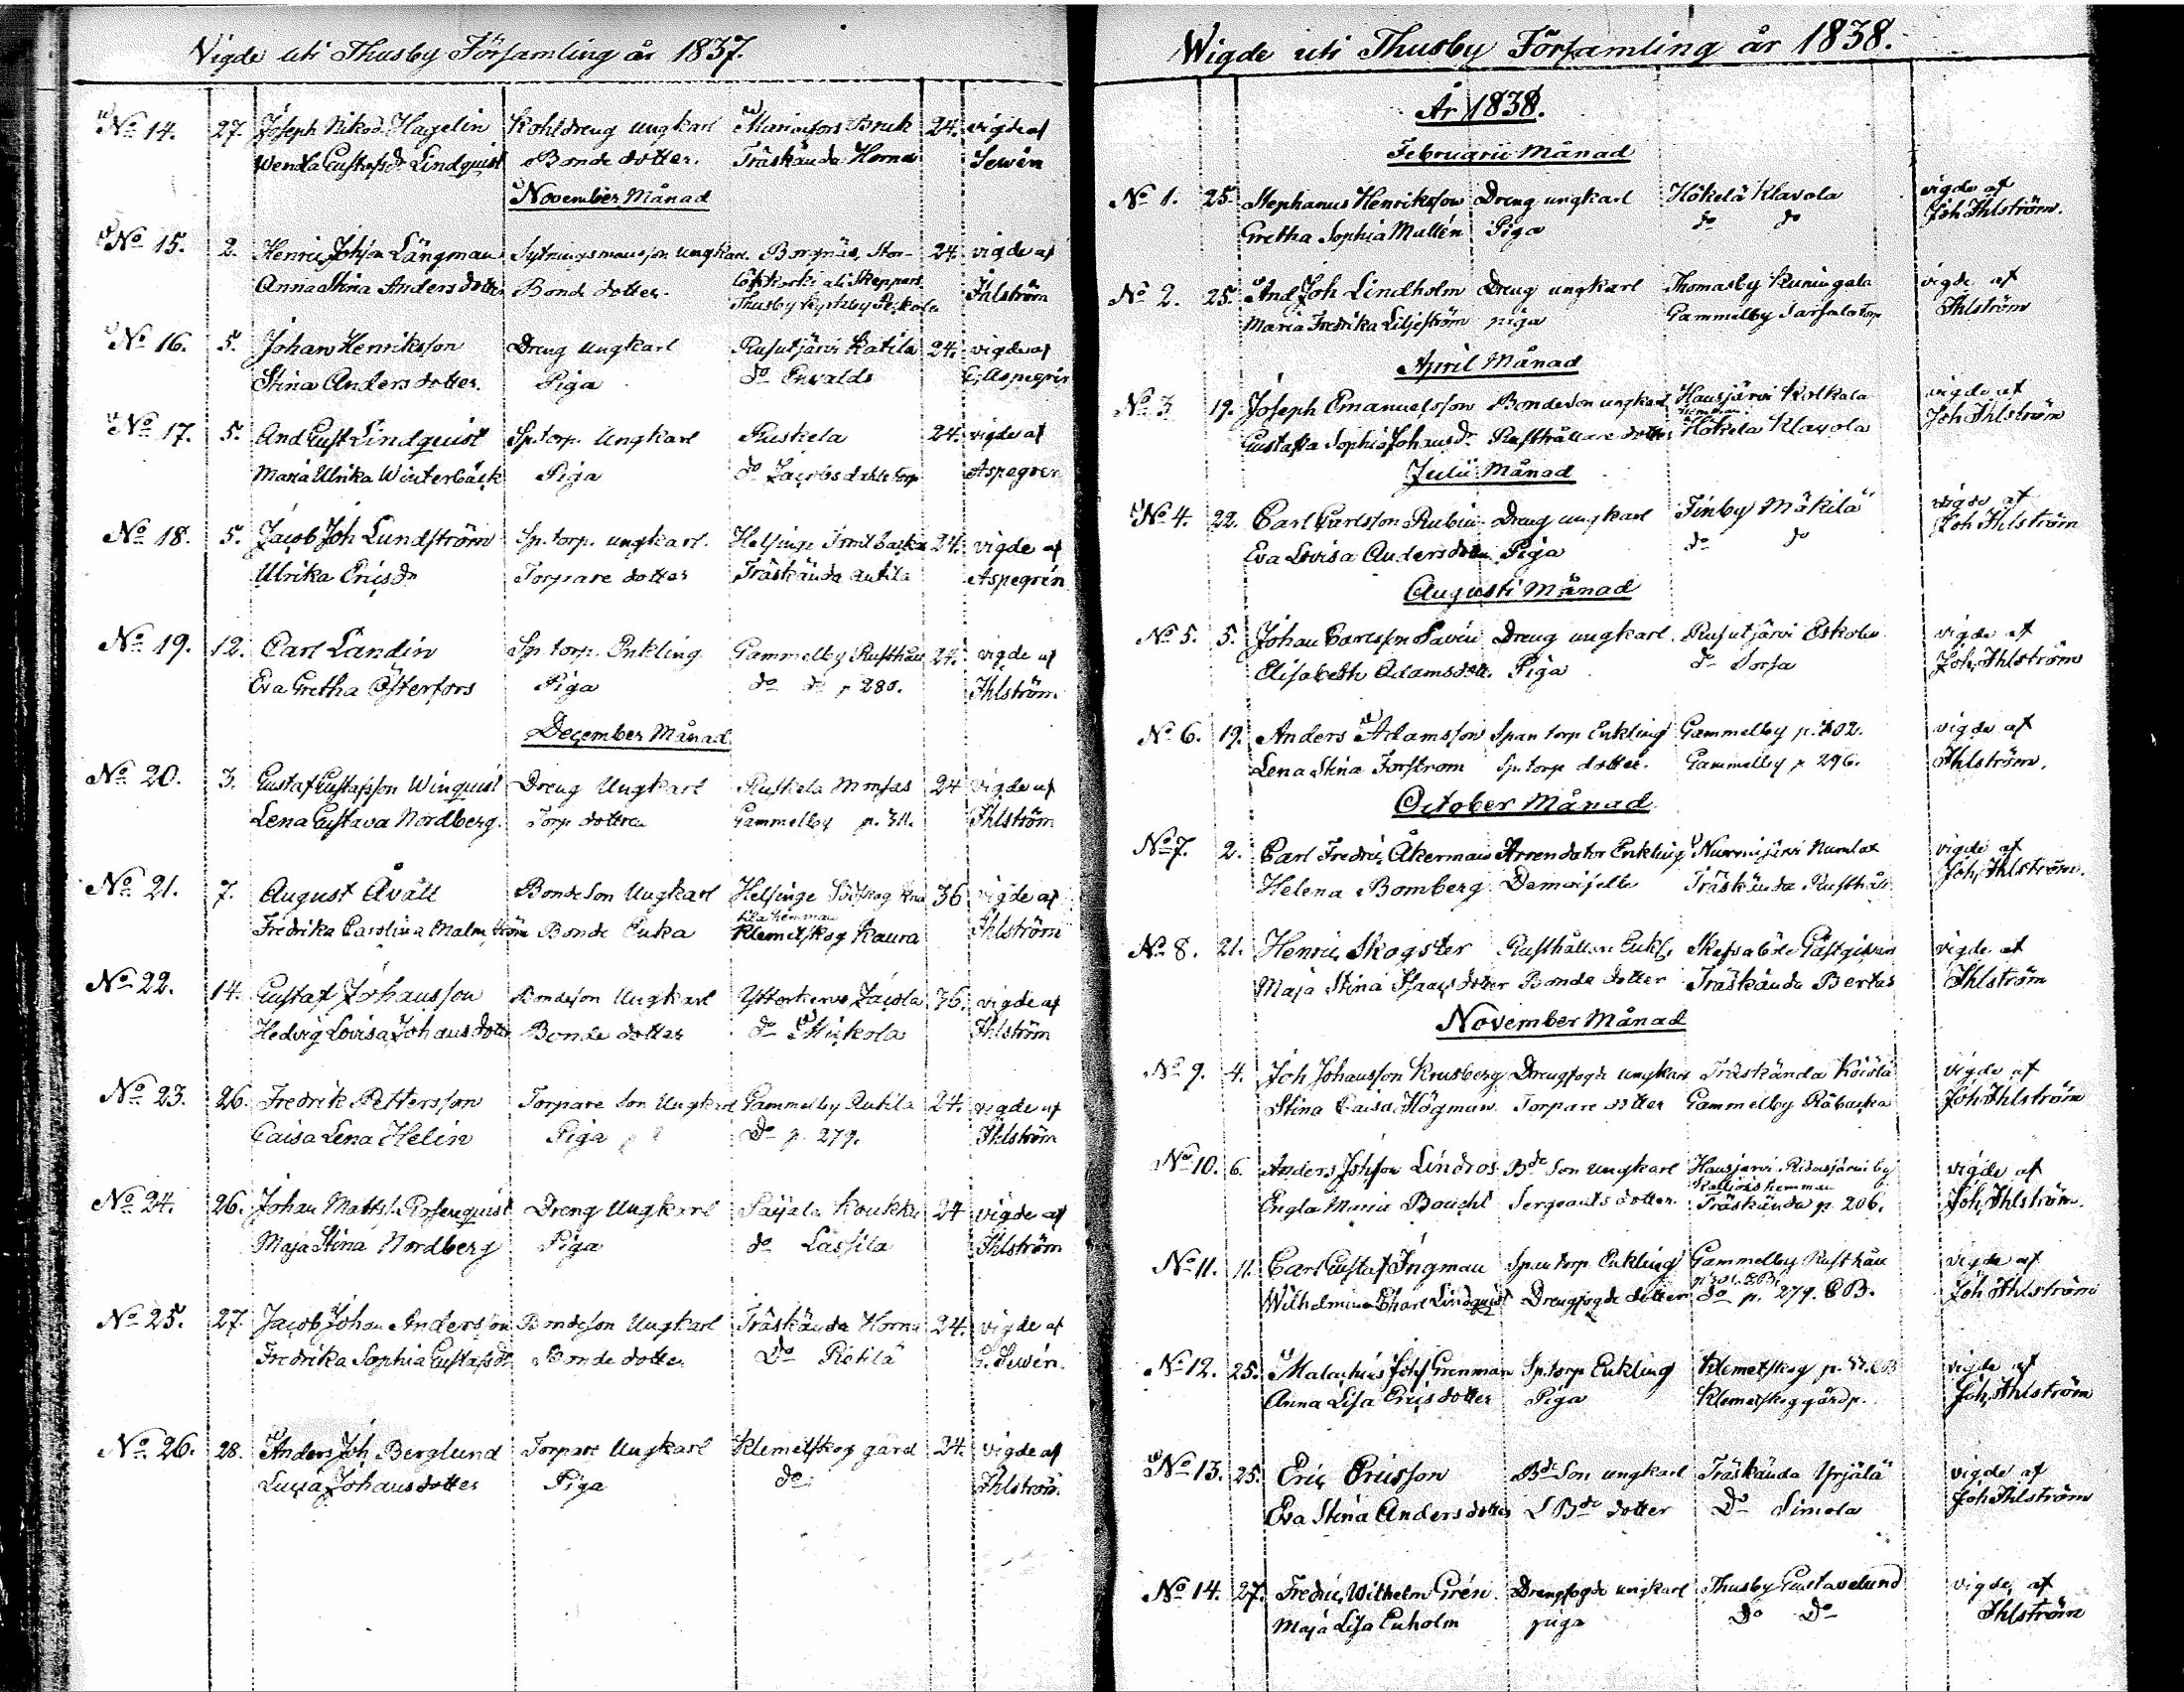 Vigde uti Thusby Församling år 1837.
No 14. 27. Joseph Nikod. Hagelin Kohldreng Ungkarl Mariæfors Bruk 24. vigde af
Wenda Gustafsdr Lindquist Bonde dotter. Träskända Horna Sewén
November Månad
No 15. 2. Henric Johsson Långman Sytningsmansson Ungkarl Borgnäs, Stor- 24. vigde af
Anna Stina Anders dotter Bonde dotter. Skeppars Ihlström
Thusby Kyrkby Pekola
No 16. 5. Johan Henriksson Dreng Ungkarl Rusutjärvi Katila 24. vigde af
Stina Anders dotter. Piga do Envalds Aspegrén
No 17. 5. And Gust Lindquist Sp. torp. Ungkarl Ruskela 24. vigde af
Maria Ulrika Winterbäck Piga do Jacobsdahls torp Aspegren
No 18. 5. Jacob Joh Lundström Sp. torp. ungkarl. Helsinge 24. vigde af
Ulrika Erics dr Torpare dotter Träskända Antila Aspegrén
No 19. 12. Carl Landin Sp. torp. Enkling Gammelby Rusthåll 24. vigde af
Eva Gretha Österfors Piga do do p 280. Ihlström
December Månad
No 20. 3. Gustaf Gustafsson Winquist Dreng Ungkarl Ruskela Monsas 24 vigde af
Lena Gustava Nordberg. Torp dotter Gammelby p. 311. Ihlström
No 21. 7. August Åvall Bondeson Ungkarl Helsinge 36 vigde af
hemman
Fredrika Carolina Malmström Bonde Enka Klemetskog Kaura Ihlström
No 22. 14. Gustaf Johansson Bondeson Ungkarl Ytterkervo Jacola 36. vigde af
Hedvig Lovisa Johans dotter Bonde dotter do Mickola Ihlström
No 23. 26. Fredrik Pettersson Torpare son Ungkarl Gammelby Antila 24. vigde af
Caisa Lena Helin Piga Do p. 279. Ihlström
No 24. 26. Johan Matts. Rosenquist Dreng Ungkarl Paijala Koukku 24 vigde af
Maja Stina Nordberg Piga do Lassila Ihlström
No 25. 27 Jacob Johan Andersson Bondeson Ungkarl Träskända Horna 24. vigde af
Fredrika Sophia Gustafsdr Bonde dotter Do Pietilä G. Sewén.
No 26. 28. Anders Joh Berglund Torpare Ungkarl Klemetskog gård 24. vigde af
Lucia Johans dotter Piga do Ihlström
Wigde uti Thusby Församling år 1838.
År 1838.
Februarii Månad
No 1. 25. Stephanus Henriksson Dreng ungkarl Hökelä Klavola vigde af
Gretha Sophia Mullén Piga do do Joh Ihlström.
No 2. 25. And Joh Lindholm Dreng ungkarl Thomasby Kuningala vigde af
Maria Fredrika Liljeström piga Gammelby torp Ihlström
April Månad
No 3 19. Joseph Emanuelsson Bondeson ungkarl Hausjärvi Kolkala vigde af
hemman
Gustafva Sophia Johans dr Rusthållare dotter Hökelä Klavola Joh Ihlström
Julii Månad
No 4. 22. Carl Carlsson Rubin Dreng ungkarl Finby Mäkilä vigde af
Eva Lovisa Anders dotter Piga do do Joh Ihlström
Augusti Månad
No 5. 5. Johan Carlsson Savén Dreng ungkarl Rusutjärvi Eskola vigde af
Elisabeth Adamsdott. Piga do Sorsa Joh. Ihlström
No 6. 19. Anders Adamsson Span torp Enkling Gammelby p. 302. vigde af
Lena Stina Forström Sp. torp dotter. Gammelby p 296. Ihlström.
October Månad
No 7. 2. Carl Fredric Åkerman Arrendator Enkling Nurmijärvi Numlax vigde af
Helena Bomberg Demoiselle Träskända Rusthåll Joh. Ihlström.
No 8. 21. Henric Skogster Rusthållare Enkl. Skafvaböle Gästgifveri vigde af
Maja Stina Isaacs dotter Bonde dotter Träskända Bertas Ihlström
November Månad
No 9. 4. Joh Johansson Krusberg Drengfogde ungkarl Träskända vigde af
Stina Caisa Högman Torpare dotter Gammelby Råbacka Joh Ihlström
No 10. 6. Anders Johsson Lindros Bde son ungkarl Hausjärvi Ridasjärvi by vigde af
hemman
Engla Maria Boucht Sergeants dotter Träskända p. 206. Joh. Ihlström.
No 11. 11. Carl Gustaf Ingman Span torp Enkling Gammelby Rusthåll vigde af
Wilhelmina Charl Lindquist Drengfogde dotter do p. 279. CB. Joh Ihlström
No 12. 25. Malachias Johs Grenman Sp. torp Enkling Klemetskog p. CB vigde af
Anna Lisa Erics dotter Piga Klemetskog gård p. Joh. Ihlström
No 13. 25. Eric Ericsson Bde Son ungkarl Träskända Yrjälä vigde af
Eva Stina Anders dotter Bde dotter Do Simola Joh Ihlström
No 14. 27. Fredric Wilhelm Grén Drengfogde ungkarl Thusby Gustavelund vigde af
Maja Lisa Enholm piga Do Do Ihlström